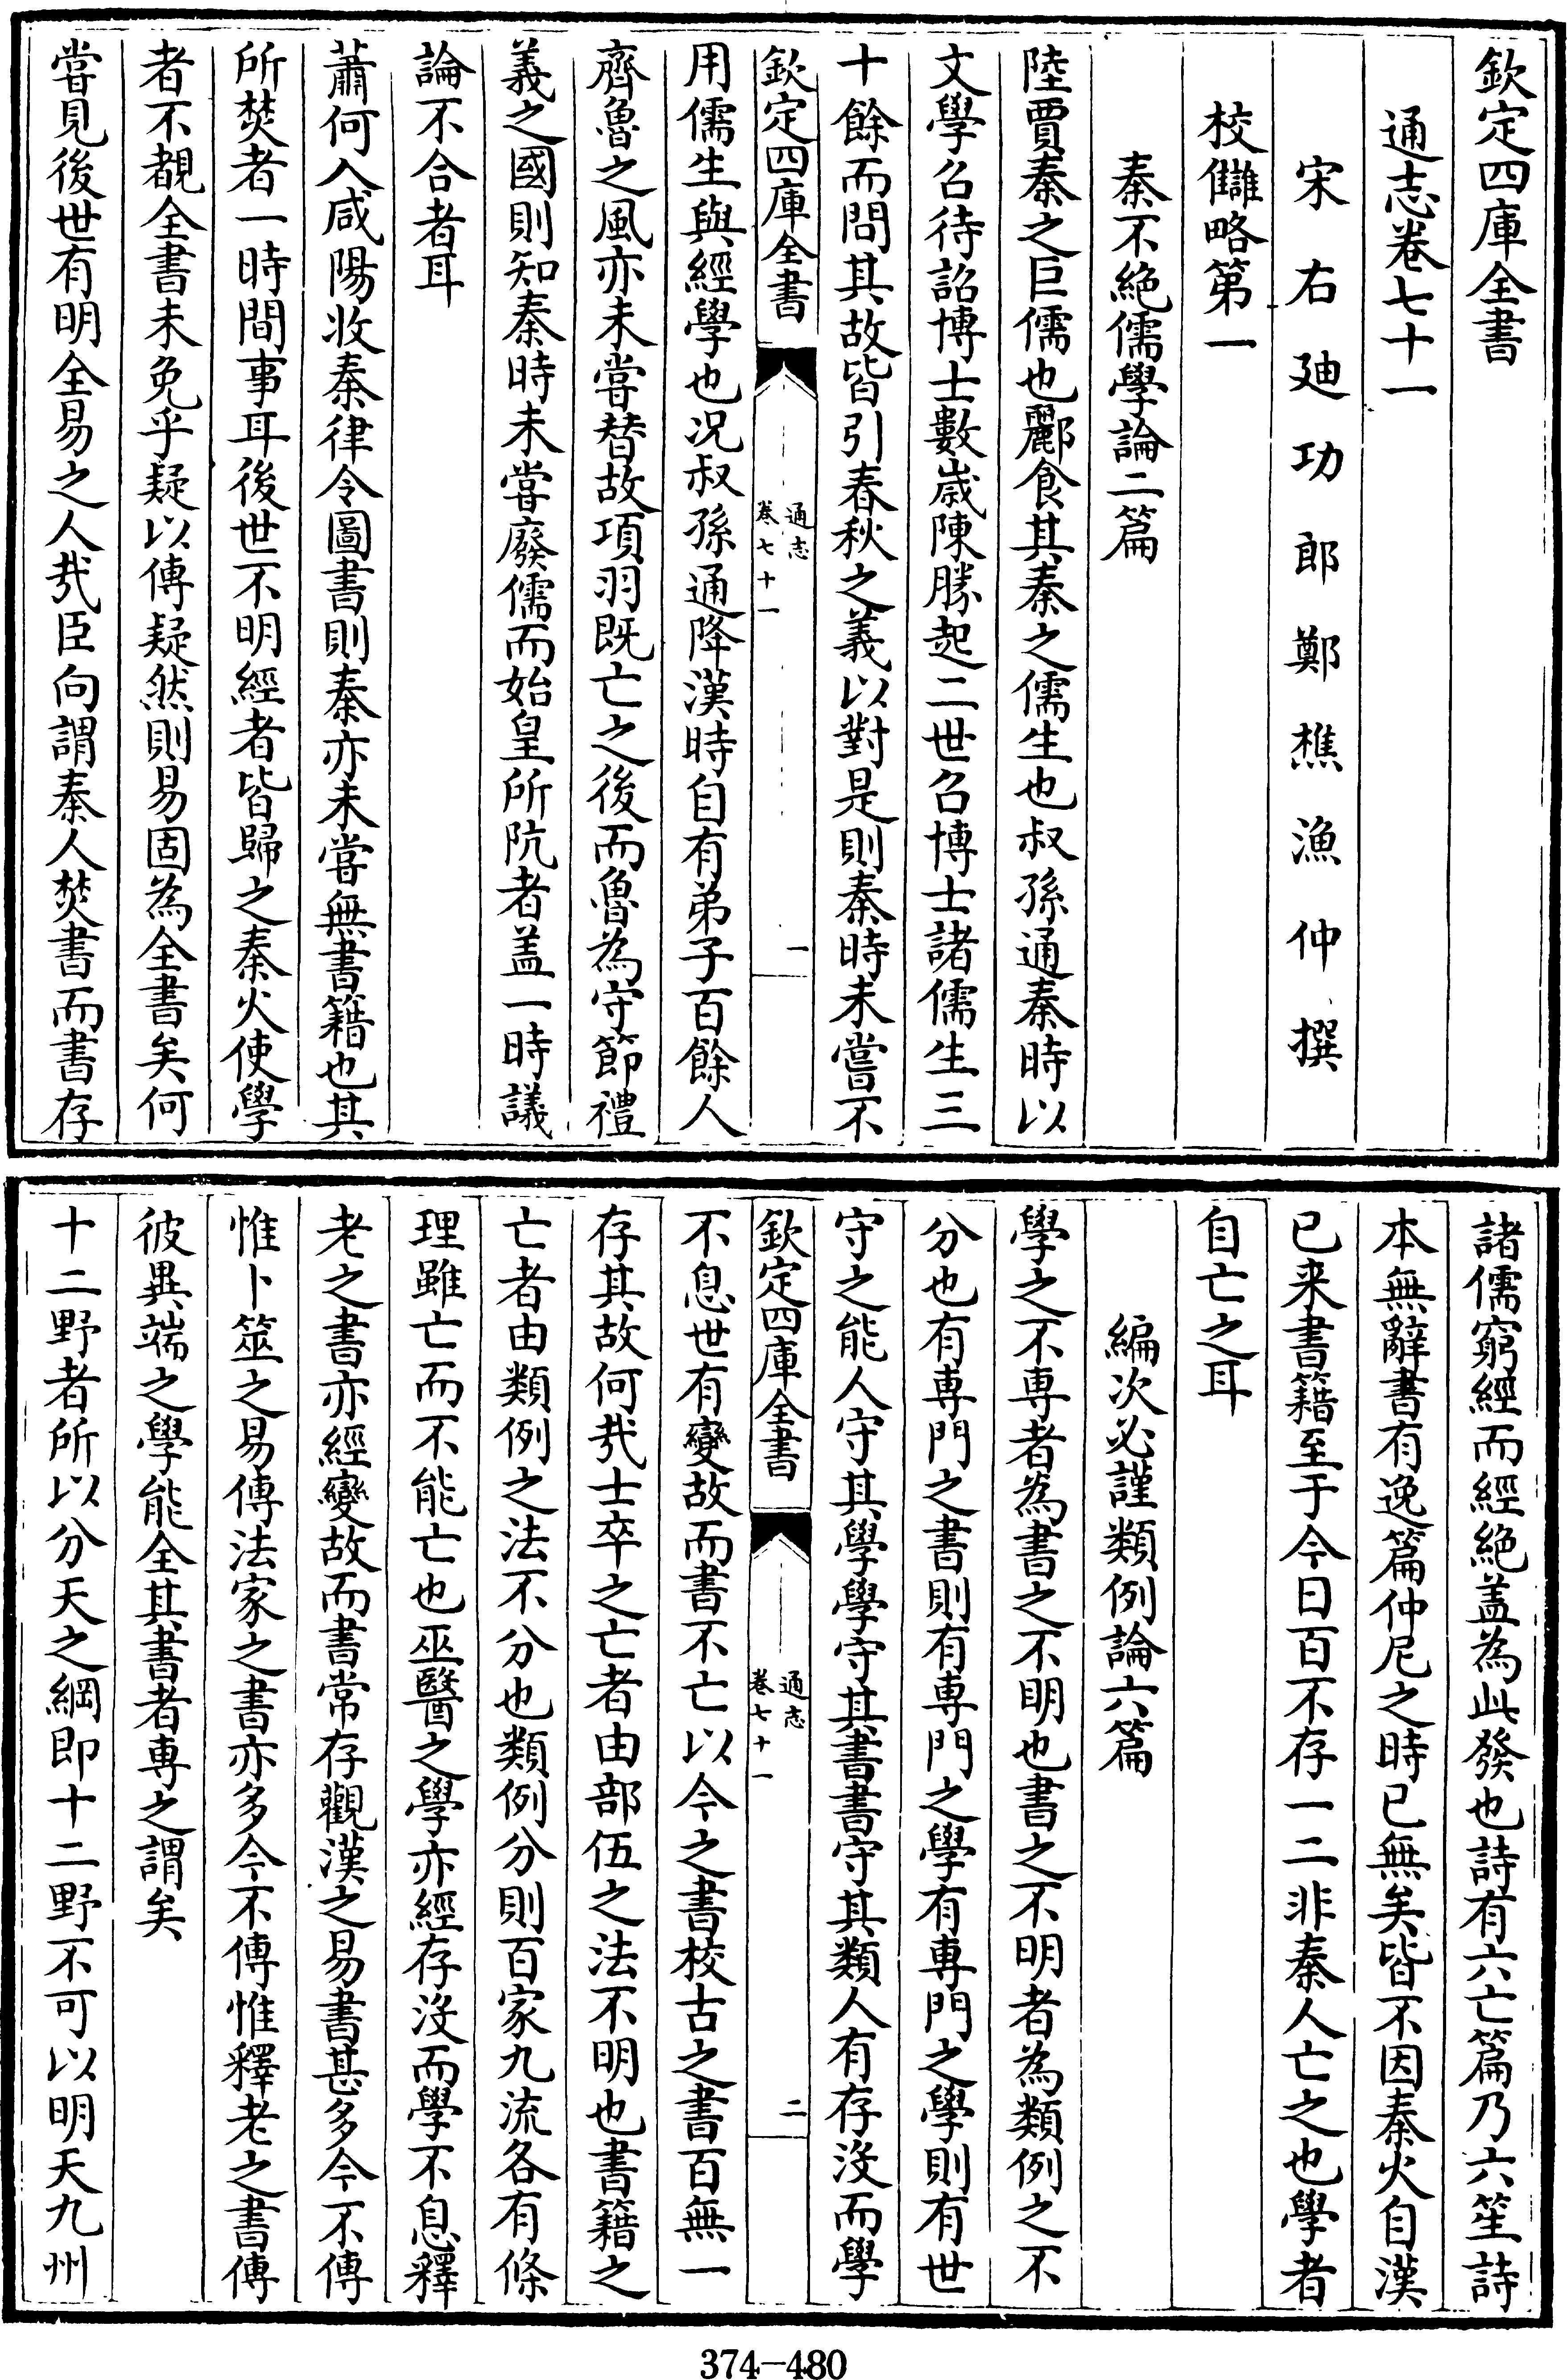 欽定四庫全書
通志卷七十一
宋右廸功郎鄭樵漁仲撰
校讎略第一
秦不絶儒學論二篇
陸賈秦之巨儒也酈食其秦之儒生也叔孫通秦時以
文學召待詔博士數歲陳勝起二世召博士諸儒生三
十餘而問其故皆引春秋之義以對是則秦時未嘗不
欽定四庫全書
通志
卷七十一
一
用儒生與經學也况叔孫通降漢時自有弟子百餘人
齊魯之風亦未嘗替故項羽既亡之後而魯為守節禮
義之國則知秦時未嘗廢儒而始皇所阬者盖一時議
論不合者耳
蕭何入咸陽收秦律令圖書則秦亦未嘗無書籍也其
所焚者一時間事耳後世不明經者皆歸之秦火使學
者不覩全書未免乎疑以傳疑然則易固為全書矣何
嘗見後世有明全易之人㢤臣向謂秦人焚書而書存
諸儒窮經而經絶盖為此發也詩有六亡篇乃六笙詩
本無辭書有逸篇仲尼之時已無矣皆不因秦火自漢
已来書籍至于今日百不存一二非秦人亡之也學者
自亡之耳
編次必謹類例論六篇
學之不專者為書之不明也書之不明者為類例之不
分也有專門之書則有專門之學有專門之學則有世
守之能人守其學學守其書書守其類人有存沒而學
欽定四庫全書
通志
卷七十一
二
不息世有變故而書不亡以今之書校古之書百無一
存其故何㢤士卒之亡者由部伍之法不明也書籍之
亡者由類例之法不分也類例分則百家九流各有條
理雖亡而不能亡也巫醫之學亦經存沒而學不息釋
老之書亦經變故而書常存觀漢之易書甚多今不傳
惟卜筮之易傳法家之書亦多今不傳惟釋老之書傳
彼異端之學能全其書者專之謂矣
十二野者所以分天之綱即十二野不可以明天九州
374-480